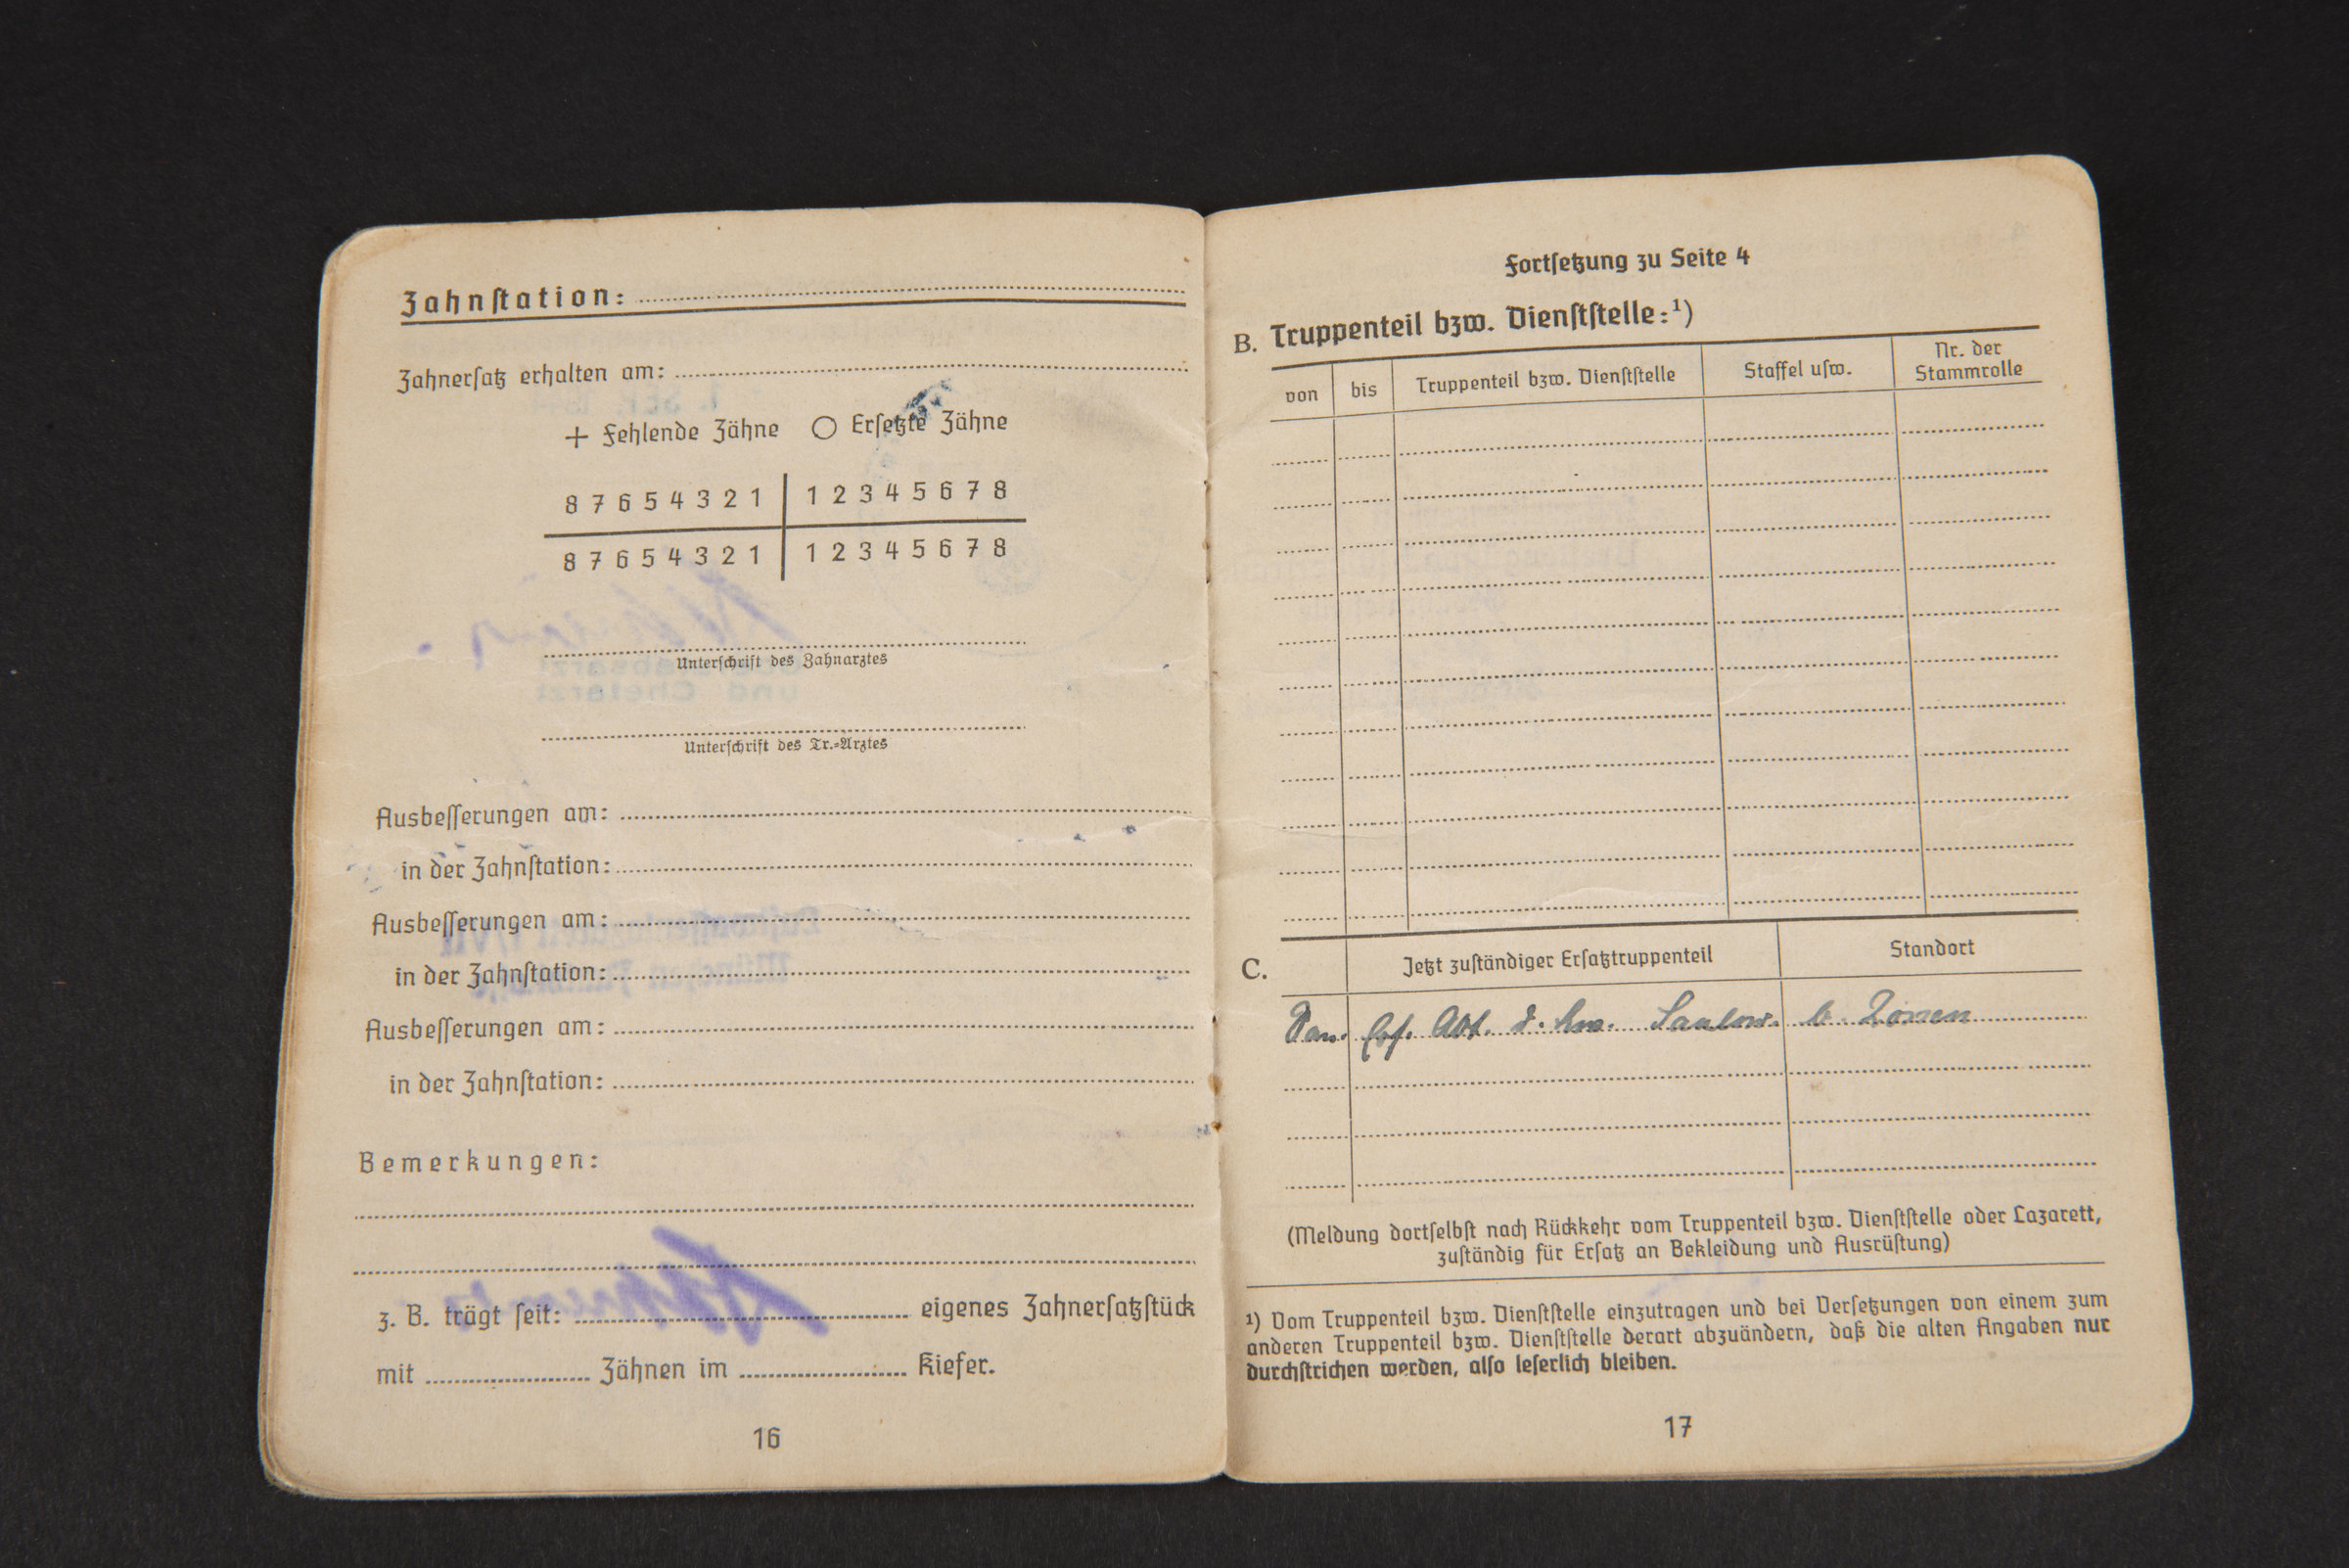 Zahnstation:
Zahnersatz erhalten am:
+ Fehlende Zähne ○ Ersetzte Zähne
8 7 6 5 4 3 2 1 1 2 3 4 5 6 7 8
8 7 6 5 4 3 2 1 1 2 3 4 5 6 7 8
Unterschrift des Zahnarztes
Unterschrift des Tr.-Arztes
Ausbesserungen am:
in der Zahnstation:
Ausbesserungen am:
in der Zahnstation:
Ausbesserungen am:
in der Zahnstation:
Bemerkungen:
z. B. trägt seit: eigenes Zahnersatzstück
mit Zähnen im Kiefer.
16
Fortsetzung zu Seite 4
B. Truppenteil bzw. Dienststelle:¹)
von bis Truppenteil bzw. Dienststelle Staffel usw. Nr. der Stammrolle
C. Jetzt zuständiger Ersatztruppenteil Standort
Pan. Abt. b. Zossen
(Meldung dortselbst nach Rückkehr vom Truppenteil bzw. Dienststelle oder Lazarett,
zuständig für Ersatz an Bekleidung und Ausrüstung)
¹) Vom Truppenteil bzw. Dienststelle einzutragen und bei Versetzungen von einem zum
anderen Truppenteil bzw. Dienststelle derart abzuändern, daß die alten Angaben nur
durchstrichen werden, also leserlich bleiben.
17